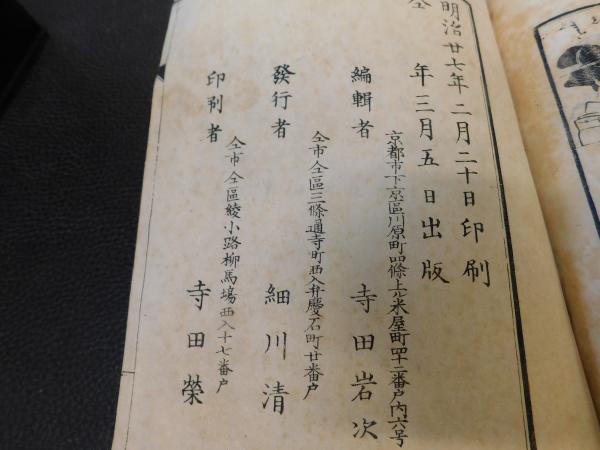 明治廿七年二月二十日印刷
仝年三月五日出版
京都市下京區川原町四條上ル米屋町四十二番戸内六号
編輯者 寺田岩次
仝市仝區三條通寺町西入弁慶石町廿番戸
發行者 細川清
仝市仝區綾小路柳馬場西入十七番戸
印刷者 寺田榮